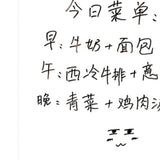 今日菜单:
早:牛奶+面包
午:西冷牛排+
晚:青菜+鸡肉